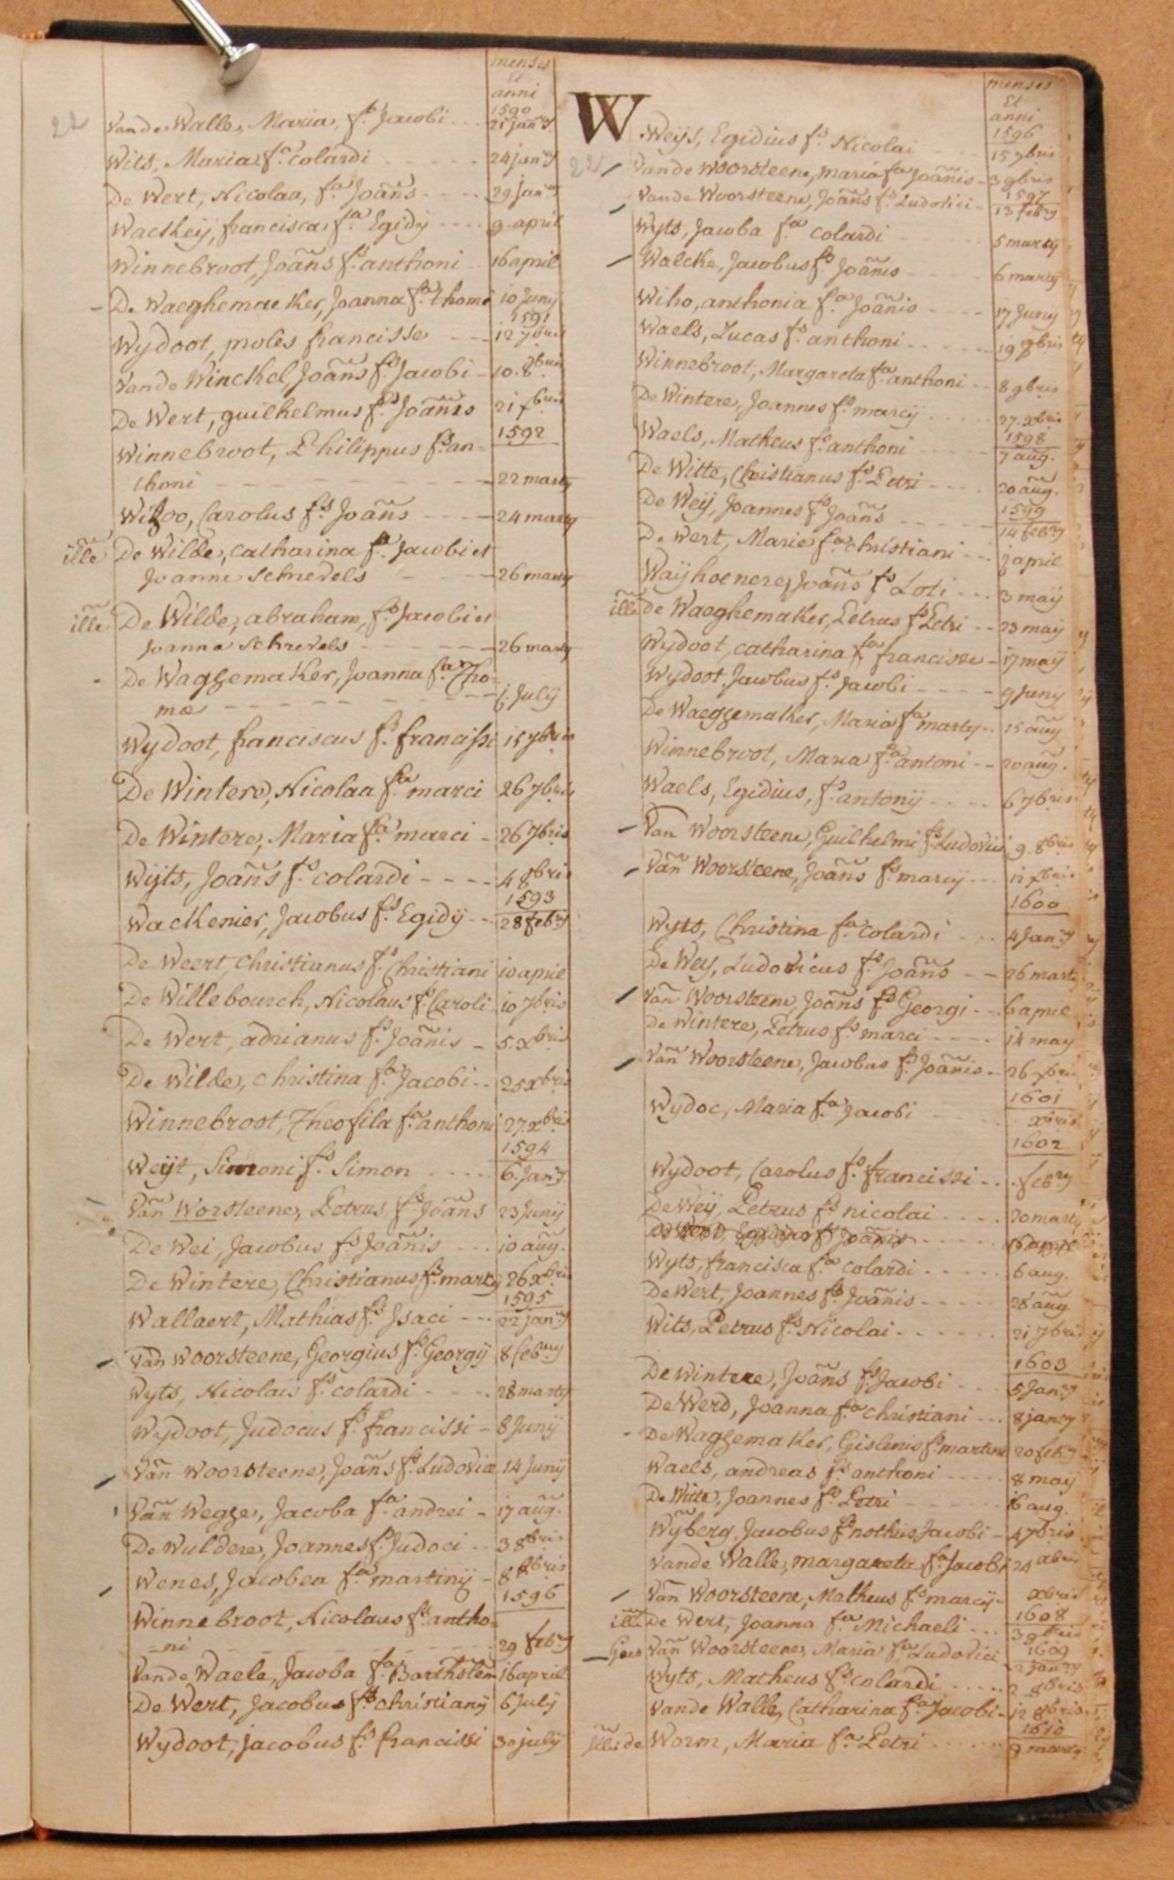 22
menses
et
anni
1590
Vande Walle, Maria, fa Jacobi 21 Jany
Wits, Maria fa colardi 24 Jany
De Wert, Nicolaa, fa Joañs 29 Jany
Waekeij, francisca fa Egidij 9 april
Winnebroot, Joañs fs anthoni 16 april
De Waeghemaeker, Joanna fa thomé 10 Juny
1591
Wydoot, proles francisse 12 7bris
Vande Winckel, Joañs fs Jacobi 10 8bris
De Wert, guilhelmus fs Joañis 21 xbris
1592
Winnebroot, Philippus fs an-
thoni 22 marty
Wihoo, Carolus fs Joañs 24 marty
ille De Wilde, catharina fa Jacobi et
Joanne Schrevels 26 marty
ille De Wilde, abraham, fs Jacobi et
Joanna Schrevels 26 marty
De Waggemaker, Joanna fa Tho-
mæ 6 July
Wydoot, franciscus fs francissi 15 7bris
De Wintere, Nicolaa fa marci 26 7bris
De Wintere, Maria fa marci 26 7bris
Wijts, Joañs fs colardi 4 8bris
1593
Wackenier, Jacobus fs Egidij 28 feby
De Weert, Christianus fs Christiani 10 april
De Willebourch, Nicolaus fs Caroli 10 7bris
De Wert, adrianus fs Joañis 5 xbris
De Wilde, Christina fa Jacobi 25 xbris
Winnebroot, Theofila fa anthoni 27 xbris
1594
Weijt, Simoni fs Simon 6 Jany
Vañ Worsteene, Petrus fs Joañs 23 Juny
De Wei, Jacobus fs Joañis 10 aug.
De Wintere, Christianus fs marty 26 xbris
1595
Wallaert, Mathias fs Jsaci 22 Jany
Van Woorsteene, Georgius fs Georgij 8 febry
Wyts, Nicolais fs colardi 28 marty
Wydoot, Judocus fs francissi 8 Junij
Vañ Woorsteene, Joañs fs Ludovici 14 Junij
Vañ Wegge, Jacoba fa andrei 17 aug.
De Wuldere, Joannes fs Judoci 3 8bris
Wenes, Jacobea fa martinij 8 8bris
1596
Winnebroot, Nicolaus fs antho-
ni 29 feby
Vande Waele, Jacoba fa Bartholem 16 april
De Wert, Jacobus fs christianij 6 July
Wydoot, Jacobus fs francissi 30 july
W
22
menses
Et
anni
1596
Weijs, Egidius fs Nicolai 15 7bris
Vande Woorsteene, maria fa Joañis 3 9bris
1597
Vande Woorsteene, Joañs fs Ludovici 13 feby
Wyts, Jacoba fa colardi 5 marty
Walcke, Jacobus fs Joañis 6 marty
Wiho, anthonia fa Joañis 17 Juny
Waels, Lucas fs anthoni 19 7bris
Winnebroot, Margareta fa anthoni 8 9bris
De Wintere, Joannes fs marcij 27 xbris
1598
Waels, Matheus fs anthoni 7 aug.
De Witte, Christianus fs Petri 20 aug.
1599
De Weij, Joannes fs Joañs 14 feby
De Wert, Marie fa christiani 2 april
Waijhoenere, Joañs fs Loti 3 maij
ille de Waeghemaker, Petrus fs Petri 23 maij
Wydoot, catharina fa francisse 17 maij
Wydoot Jacobus fs Jacobi 9 Juny
De Waeggemaker, Maria fa marty 15 aug
Winnebroot, Maria fa antoni 20 aug.
Waels, Egidius, fs antonij 6 7bris
Van Woorsteene, Guilhelmi fs Ludovici 9 8bris
Vañ Woorsteene, Joañs fs marcy 12 xbris
1600
Wyts, Christina fa colardi 4 Jany
De Weij, Ludovicus fs Joañs 26 marty
Vañ Woorsteene, Joañs fs Georgi 6 april
De Wintere, Petrus fs marci 14 may
Vañ Woorsteene, Jacobus fs Joañis 26 xbris
1601
Wydoc, Maria fa Jacobi xbris
1602
Wydoot, Carolus fs francissi febry
De Weij, Petrus fs nicolai 20 marty
16 april
Wyts, francisca fa colardi 6 aug.
De Wert, Joannes fs Joañis 28 aug
Wits, Petrus fs Nicolai 21 7bris
1603
De Wintere, Joañs fs Jacobi 5 Jany
De Werd, Joanna fa christiani 8 jany
De Waggemaker, Gislenus fs martini 20 feby
Waels, andreas fs anthoni 8 may
De Witte, Joannes fs Petri 16 aug.
Wyberg, Jacobus fs nothus Jacobi 4 7bris
Vande Walle, margareta fa Jacobi 24
Vañ Woorsteene, Matheus fs marcij xbris
1608
ille De Wert, Joanna fa Michaeli 3 9bris
1609
Vañ Woorsteene, Maria fa Ludovici 2 Jany
Wyts, Matheus fs colardi 2 8bris
Vande Walle, Catharina fa Jacobi 12 8bris
1610
ille de Worm, Maria fa Petri 9 marty